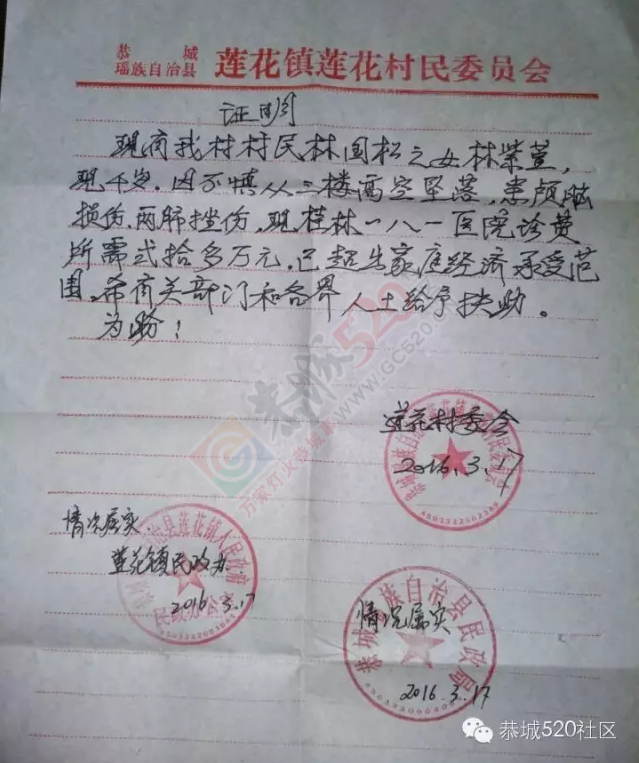 恭城
瑶族自治县 莲花镇莲花村民委员会
证明
现有我村村民林国松之女林紫萱，
现千岁，因不慎从三楼高空坠落，患颅脑
损伤，两肺挫伤，现桂林一八一医院诊费
所需贰拾多万元，已超出家庭经济承受范
围。希有关部门和各界人士给予扶助。
为盼！
莲花村委会
2016.3.17
情况属实
莲花镇民政办
2016.3.17
情况属实
恭城瑶族自治县民政局
2016.3.17
恭城520
WWW.GC520.C
万家灯火恭城
恭城520社区